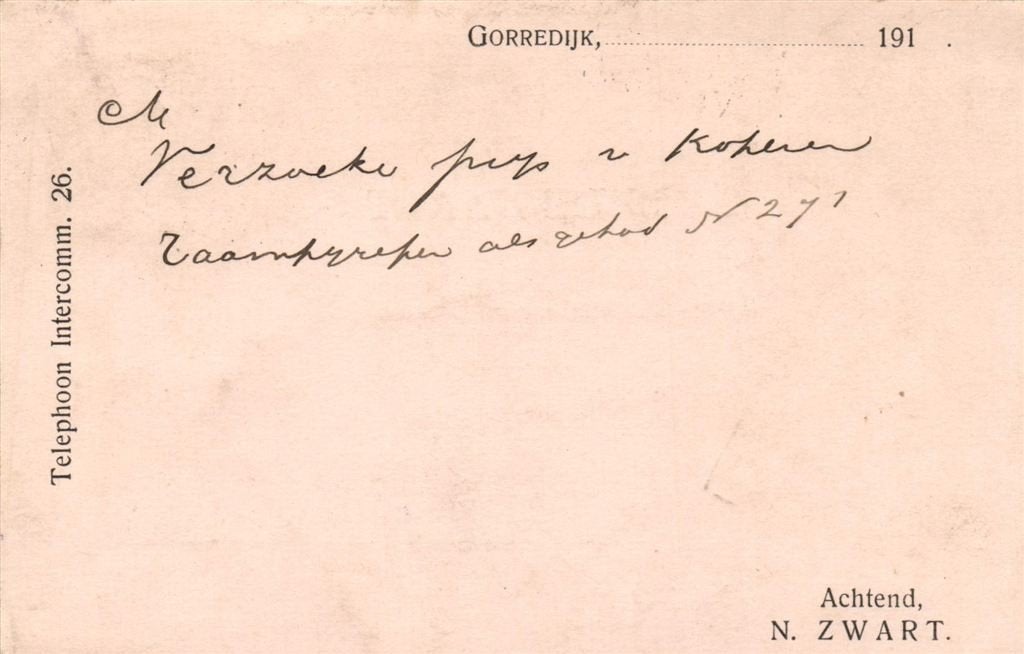 GORREDIJK, 191 .
M
Verzoeke prijs v Koperen
Raamkrepen als gehad N 271
Telephoon Intercomm. 26.
Achtend,
N. ZWART.